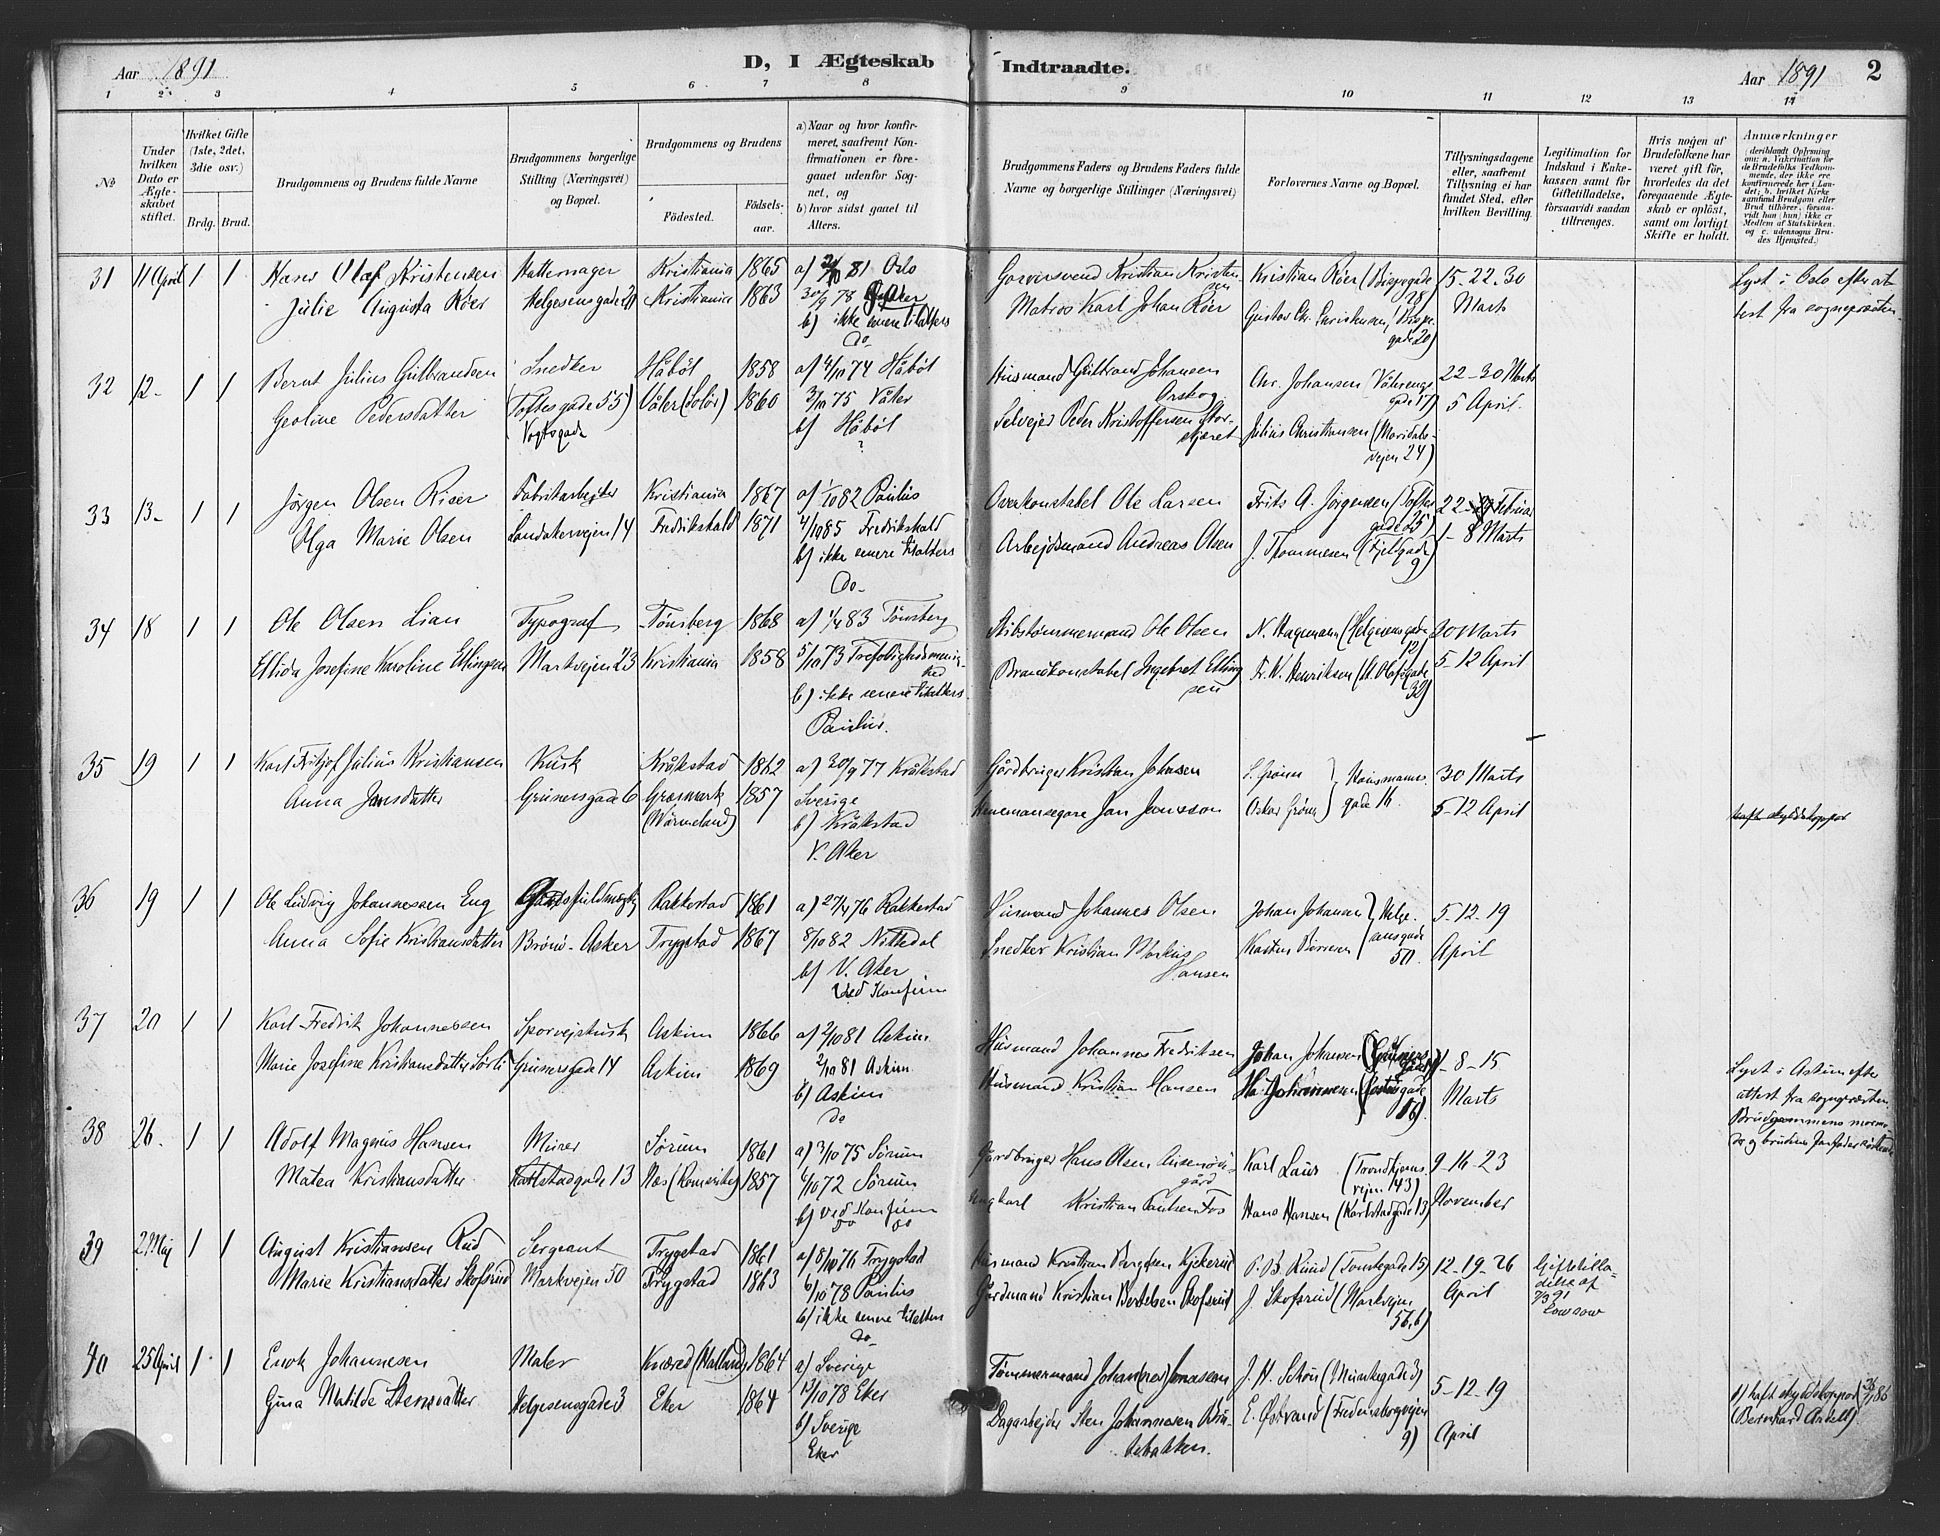 Aar 1891
D, I Ægteskab Indtraadte.
Aar 1891
2
1 2 3 4 5 6 7 8 9 10 11 12 13 14
№
Under hvilken Dato er Ægteskabet stiftet.
Hvilket Gifte (1ste, 2det, 3die osv.)
Brdg. Brud.
Brudgommens og Brudens fulde Navne
Brudgommens borgerlige Stilling (Næringsvei) og Bopæl.
Brudgommens og Brudens
Fødested.
Fødselsaar.
a) Naar og hvor konfirmeret, saafremt Konfirmationen er foregaaet udenfor Sognet, og
b) hvor sidst gaaet til Alters.
Brudgommens Faders og Brudens Faders fulde Navne og borgerlige Stillinger (Næringsvei)
Forlovernes Navne og Bopæl.
Tillysningsdagene eller, saafremt Tillysning ei har fundet Sted, efter hvilken Bevilling.
Legitimation for Indskud i Enkekassen samt for Giftetilladelse, forsaavidt saadan tiltrænges.
Hvis nogen af Brudefolkene har været gift før, hvorledes da det foregaaende Ægteskab er opløst, samt om lovligt Skifte er holdt.
Anmærkninger (deriblandt Oplysning om: a. Vakcination for de Brudefolks Vedkommende, der ikke ere konfirmerede her i Landet; b. hvilket Kirkesamfund Brudgom eller Brud tilhører, forsaavidt han (hun) ikke er Medlem af Statskirken og c. udensogns Brudes Hjemsted.)
31 11 April 1 1 Hans Olaf Kristensen Hattemager Kristiania 1865 a) 81 Oslo Kristian Kristensen Kristian Röer (Bispegade 28) 15-22-30 Marts Lyst i Oslo efter attest fra sognepræsten
Julie Augusta Röer Helgesensgade Kristiania 1863 30/9 78 Aker Matros Karl Johan Röer Gustav Chr. Christensen (Bispegade 20)
b) ikke senere tilalters
Do
32 12- 1 1 Bernt Julius Gulbrandsen Snedker Håböl 1858 a) 4/10 74 Håböl Husmand Gulbrand Johansen Orskog Chr. Johansen Vålerengsgade 17) 22-30 Marts
Geoline Pedersdatter (Toftesgade 55) Våler (Solör) 1860 3/10 75 Våler Selvejer Peder Kristoffersen Julius Christiansen (Maridalsvejen 24) 5 April
Vogtsgade b) Håböl
?
33 13- 1 1 Jörgen Olsen Riser Fabrikarbejder Kristiania 1867 a) 1/10 82 Paulus Overkonstabel Ole Larsen Frits A. Jörgensen (Toftesgade 25) 22- Februar
Olga Marie Olsen Landakervejen 14 Fredrikshald 1871 4/10 85 Fredrikshald Arbejdsmand Andreas Olsen J. Thommesen (Fjeldgade 9) 1- 8 Marts
b) ikke senere tilalters
Do-
34 18 1 1 Ole Olsen Lian Typograf Tönsberg 1868 a) 1/4 83 Tönsberg Skibstömmermand Ole Olsen N. Hagemann (Helgesensgade 12) 30 Marts
Ellida Josefine Karoline Ellingsen Markvejen 23 Kristiania 1858 5/10 73 Trefoldighedsmenighed Brandkonstabel Ingebret Ellingsen Fr. W. Henriksen (St. Olafsgade 32) 5-12 April
b) ikke senere tilalters.
Paulus.
35 19 1 1 Karl Fritjof Julius Kristiansen Kusk Kråkstad 1862 a) 30/9 77 Kråkstad Gårdbruger Kristian Johnsen S. Grönn 30 Marts
Anna Jansdatter Grünersgade 6 Græsmark (Wärmeland) 1857 Sverige Hemmansegare Jan Jansson Oskar Grönn Hausmannsgade 16. 5-12 April
b) Kråkstad
V. Aker
haft skyddskoppor
36 19 1 1 Ole Ludvig Johannessen Eng Gårdsfuldmægtig Rakkestad 1861 a) 27/4 76 Rakkestad Husmand Johannes Olsen Johan Johansen 5-12-19
Anna Sofie Kristiansdatter Brönö- Asker Trygstad 1867 8/10 82 Nittedal Snedker Kristian Markus Hansen Karsten Helgesensgade 50. April
b) V. Aker
Ved Konfirm
37 20 1 1 Karl Fredrik Johannessen Sporvejskusk Askim 1866 a) 2/10 81 Askim Husmand Johannes Fredriksen Johan Johansen (Grünersgade) 1-8-15
Marie Josefine Kristiansdatter Sörli Grünersgade 14 Askim 1869 2/10 81 Askim Husmand Kristian Hansen 16). Marts
b) Askim
Do
Lyst i Askim efter attest fra sognepræsten. Brudgommens
38 26. 1 1 Adolf Magnus Hansen Murer Sörum 1861 a) 3/10 75 Sörum Gårdbruger Hans Olsen Karl Laus (Trondhjemsvejen 43) 9-16-23
Matea Kristiansdatter Karlstadgade 13 Næs (Romerike) 1857 6/10 72 Sörum Ungkarl Kristian Paulsen Fos Hans Hansen (Karlstadgade 13) November
b) ved Konfirm
Do do
39 2 Maj 1 1 August Kristiansen Rud Sergeant Trygstad 1861 a) 8/10 76 Trygstad Husmand Kristian P. B. Ruud (Tomtegade 15) 12-19-26 Giftetilladelse af 7/3 91
Marie Kristiansdatter Skofsrud Markvejen 50 Trygstad 1863 6/10 78 Paulus Gårdmand Kristian Bertelsen Skofsrud J. Skofsrud (Markvejen 56.b) April
b) ikke senere tilalters
do
40 25 April 1 1 Enok Johannesen Maler Knæred (Halland) 1864 a) Sverige Tömmermand Johan(nes) Jonassen J. H. Schöu (Munkegade 3) 5-12-19
Gina Matilde Stensdatter Helgesensgade 3 Eker 1864 13/10 78 Eker Dagarbejder Sten Johannesen E. Östvand (Fredensborgvejen 9) April
b) Sverige
Eker
haft skyddskoppor
(Bernhard